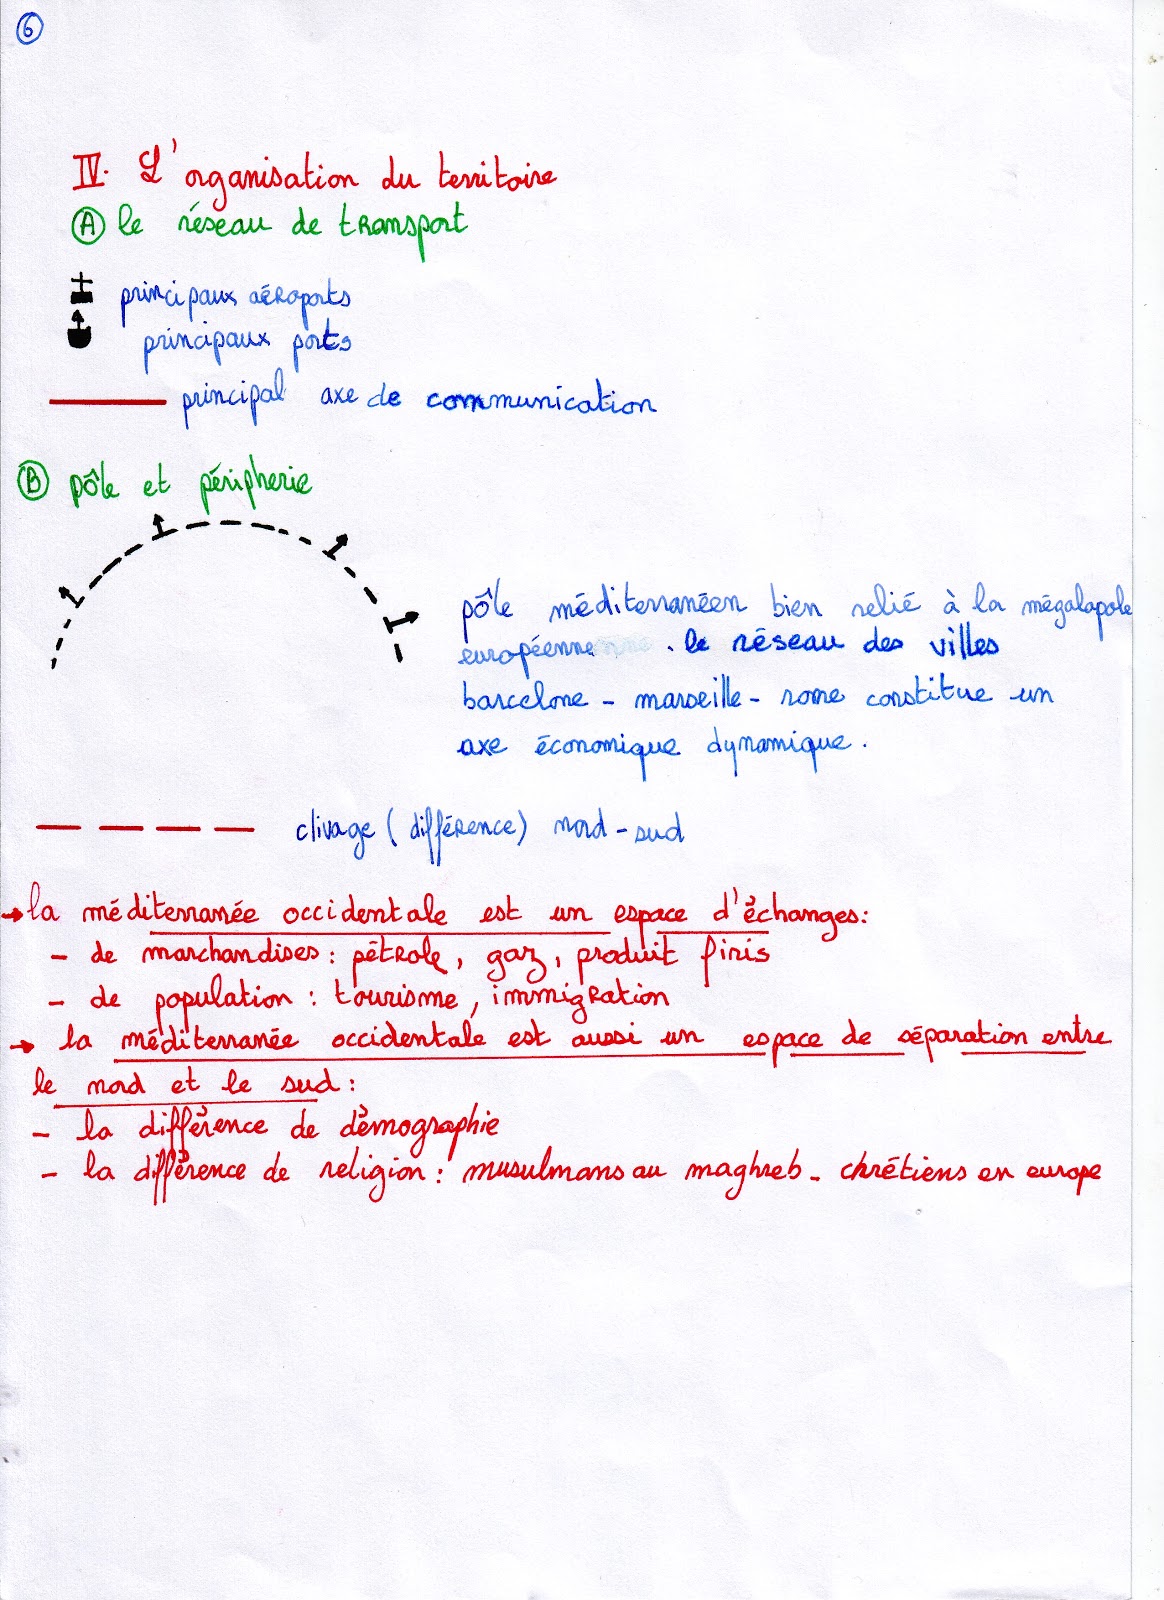 6
IV. L'organisation du territoire
A le réseau de transport
principaux aéroports
principaux ports
principal axe de communication
B pôle et périphérie
pôle méditerranéen bien relié à la mégalapole
européenne . le réseau des villes
barcelone - marseille - rome constitue un
axe économique dynamique.
clivage (différence) nord-sud
→ la méditerranée occidentale est un espace d'échanges:
- de marchandises : pétrole, gaz, produit finis
- de population : tourisme, immigration
→ la méditerranée occidentale est aussi un espace de séparation entre
le nord et le sud :
- la différence de démographie
- la différence de religion : musulmans au maghreb - chrétiens en europe